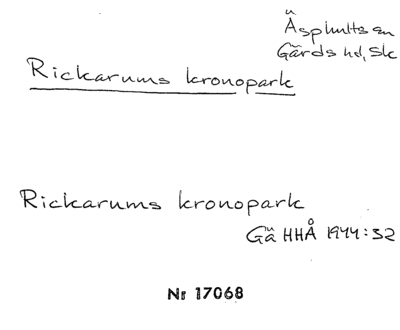 Äsphults sn
Gärds hd, Sk
Rickarums kronopark
Rickarums kronopark
Gä HHÅ 1944:32
Nr 17068